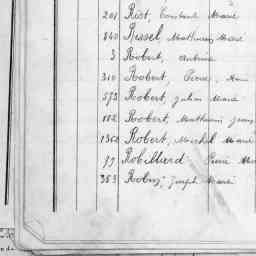 201 Rist, Constant Marie
840 Rissel, Mathurin Marie
3 Robert, Antoine
310 Robert, Pierre
572 Robert, Julien Marie
112 Robert, Mathurin
1350 Robert, Michel Marie
79 Robillard Pierre
353 Robin, Joseph Marie